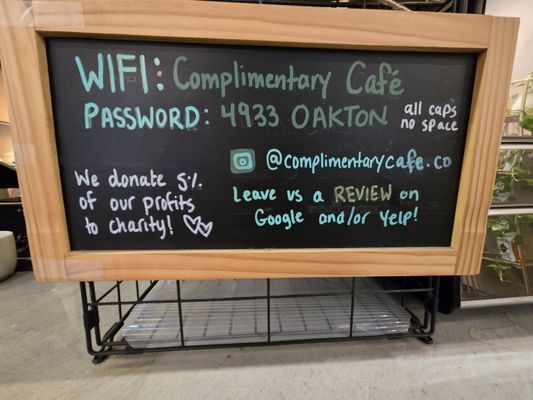 WIFI: Complimentary Café
PASSWORD: 4933 OAKTON
all caps
no space
@complimentarycafe.co
We donate 5%
of our profits
to charity!
Leave us a REVIEW on
Google and/or Yelp!